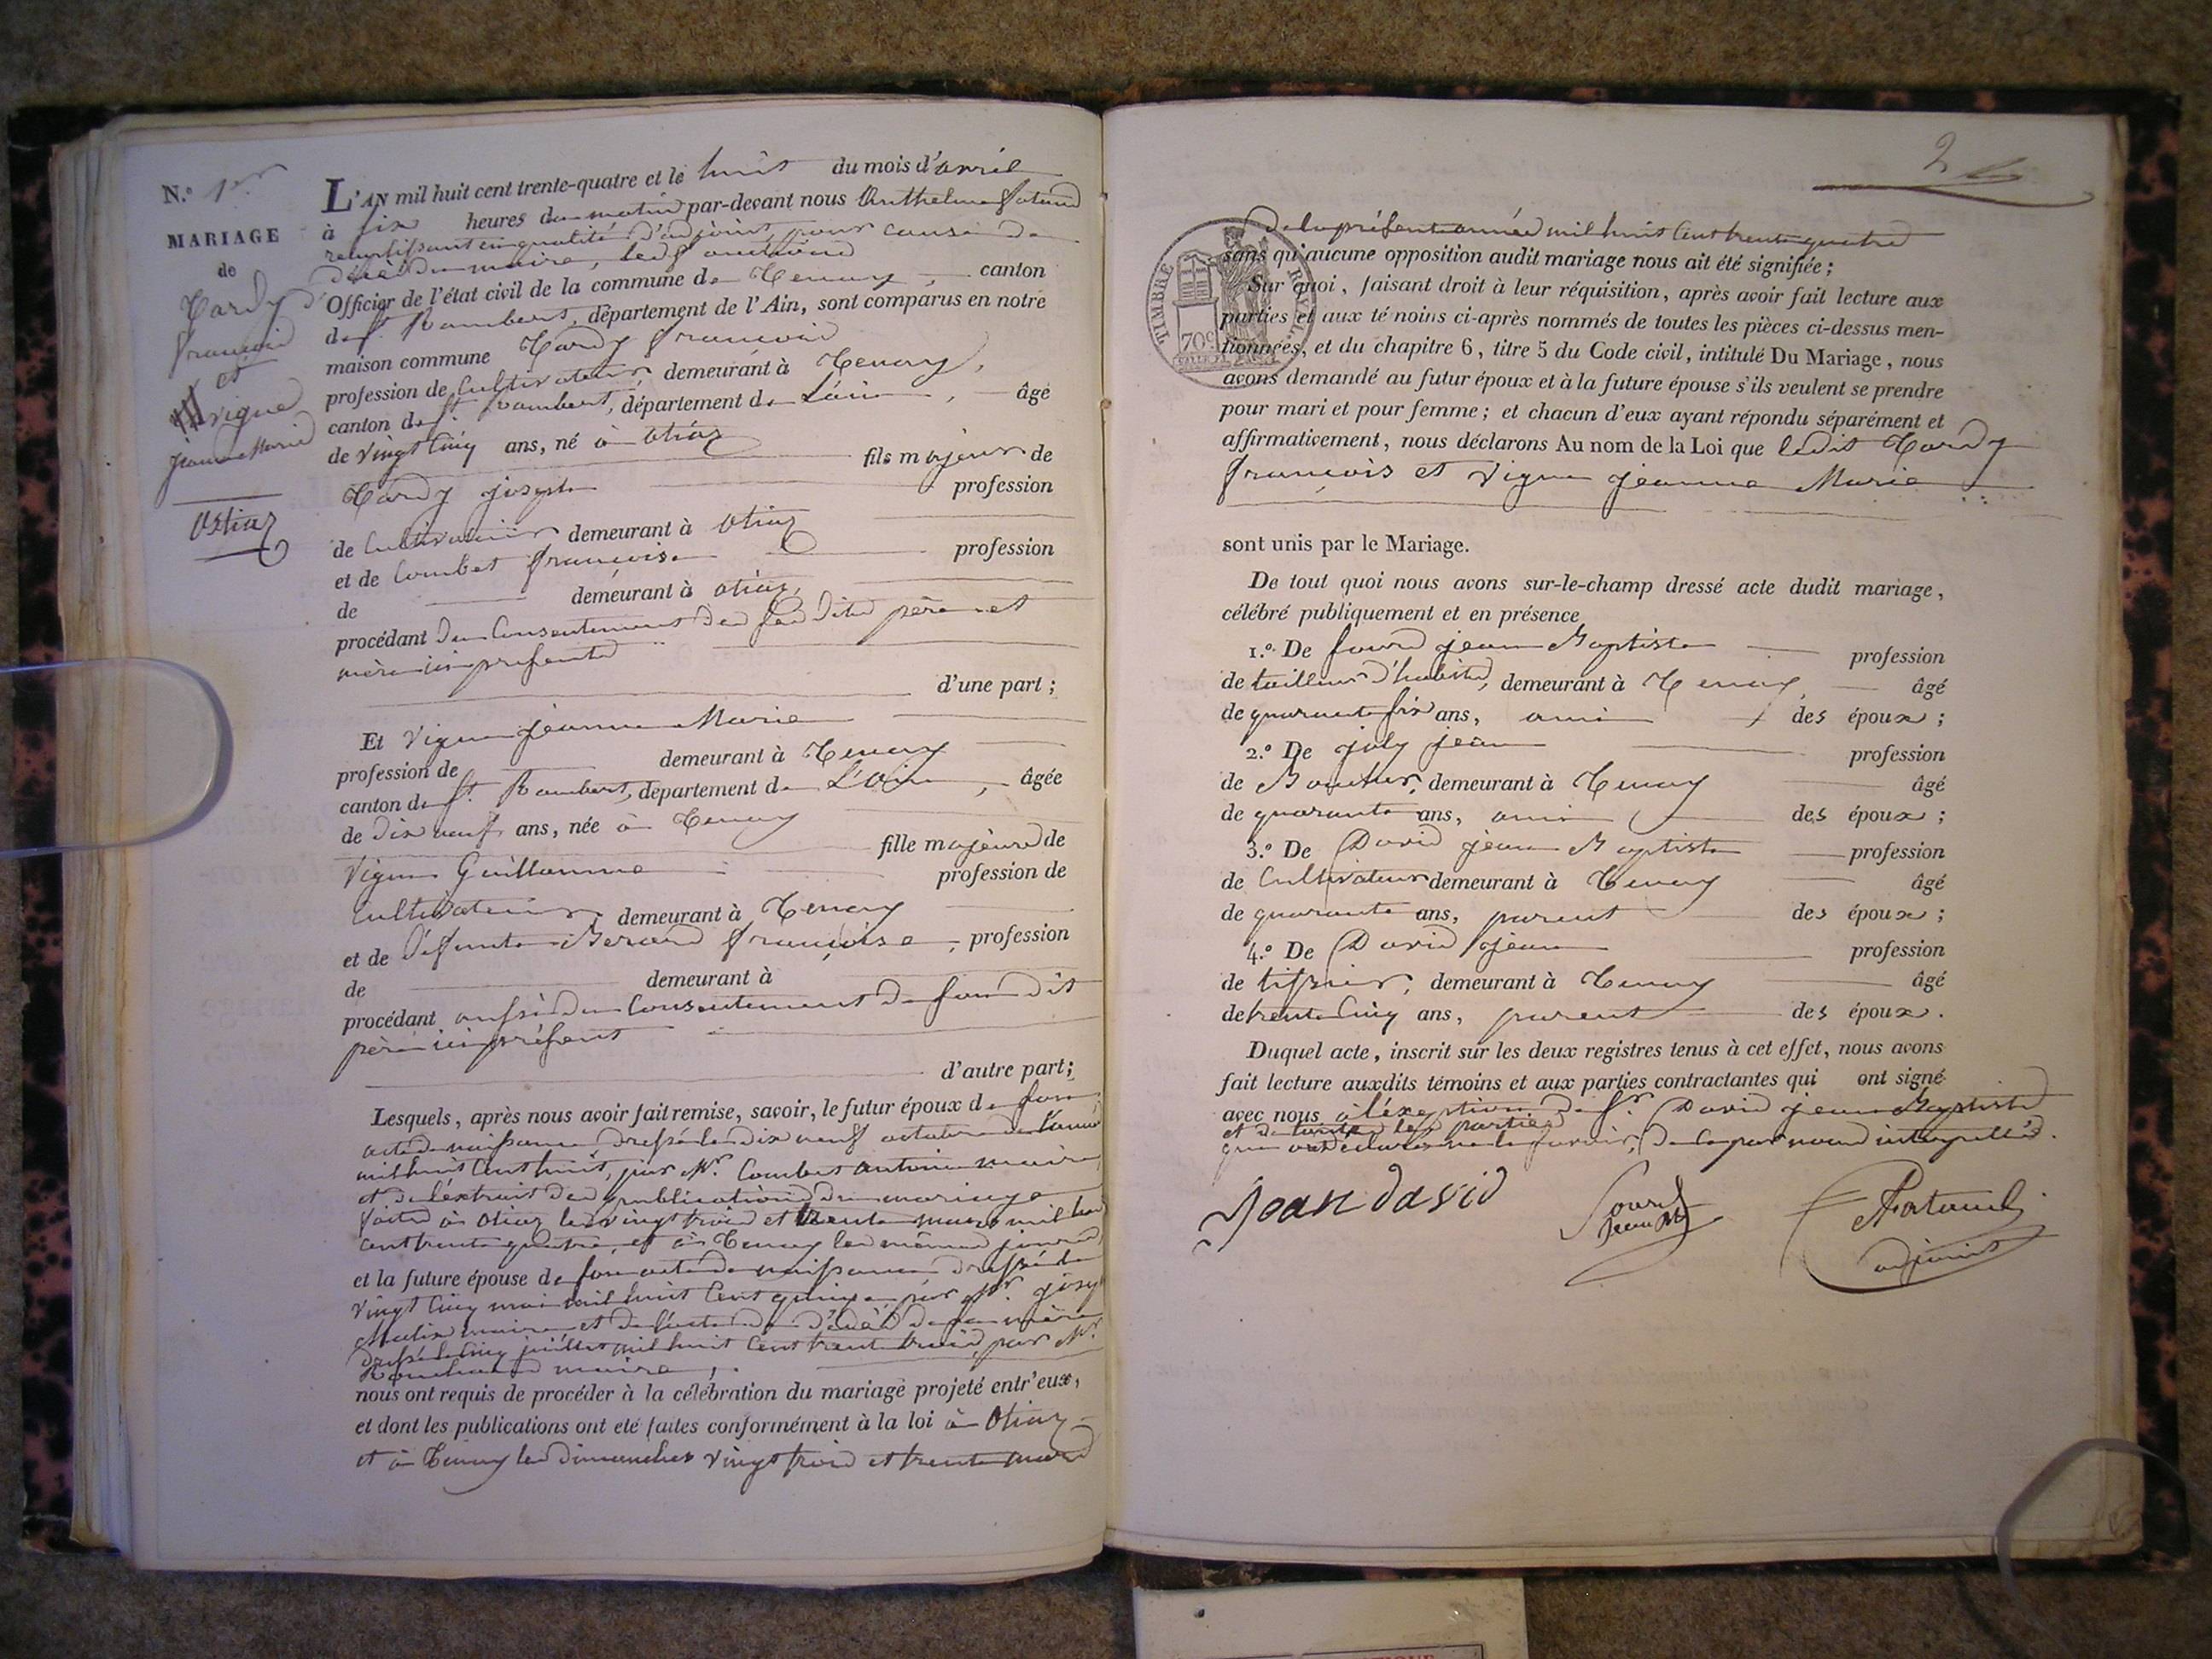 N.º 1er
MARIAGE
de
Tardy
françois
et
Vigne
jeanne Marie
Ostiaz
L'AN mil huit cent trente-quatre et le huit du mois d'avril
à six heures du matin par-devant nous Anthelme
remplissant en qualité d'adjoint, pour cause de
décès du maire, les fonctions
d'Officier de l'état civil de la commune de Tenay, canton
de St. Rambert, département de l'Ain, sont comparus en notre
maison commune Tardy françois
profession de Cultivateur, demeurant à Tenay,
canton de St. Rambert, département de L'ain, âgé
de vingt Cinq ans, né à Otiaz
fils majeur de
Tardy joseph profession
de Cultivateur demeurant à Otiaz
et de Combet françoise profession
de demeurant à otiaz,
procédant du Consentement des susdits père et
mère ici présents
d'une part;
Et Vigne jeanne Marie
profession de demeurant à Tenay
canton de St. Rambert, département de L'Ain, âgée
de dix neuf ans, née à Tenay
fille majeure de
Vigne Guillaume profession de
Cultivateur demeurant à Tenay
et de Défunte Berard françoise, profession
de demeurant à
procédant aussi du Consentement de son dit
père ici présent
d'autre part;
Lesquels, après nous avoir fait remise, savoir, le futur époux de son
acte de naissance dressé le dix neuf octobre de l'année
mil huit Cent huit, par Mr. Combet antoine maire,
et de l'extrait des publications de mariage
faites à Otiaz les vingt trois et trente mars mil huit
Cent trente quatre, et à Tenay les mêmes jours
et la future épouse de son acte de naissance dressé le
vingt Cinq mai mil huit Cent quinze par Mr. josep
maire et de l'acte de décès de sa mère
dressé le Cinq juillet mil huit Cent trente trois, par Mr.
maire,
nous ont requis de procéder à la célébration du mariage projeté entr'eux,
et dont les publications ont été faites conformément à la loi à Otiaz
et à Tenay les dimanches vingt trois et trente mars
2
de la présente année mil huit Cent trente quatre
sans qu'aucune opposition audit mariage nous ait été signifiée;
Sur quoi, faisant droit à leur réquisition, après avoir fait lecture aux
parties et aux témoins ci-après nommés de toutes les pièces ci-dessus men-
tionnées, et du chapitre 6, titre 5 du Code civil, intitulé Du Mariage, nous
avons demandé au futur époux et à la future épouse s'ils veulent se prendre
pour mari et pour femme; et chacun d'eux ayant répondu séparément et
affirmativement, nous déclarons Au nom de la Loi que ledit Tardy
françois et Vigne jeanne Marie
TIMBRE ROYAL
70c
sont unis par le Mariage.
De tout quoi nous avons sur-le-champ dressé acte dudit mariage,
célébré publiquement et en présence
1.º De jean Baptiste profession
de tailleur d'habits, demeurant à Tenay, âgé
de quarante six ans, ami des époux;
2.º De joly jean profession
de Boucher, demeurant à Tenay âgé
de quarante ans, ami des époux;
3.º De David jean Baptiste profession
de Cultivateur demeurant à Tenay âgé
de quarante ans, parent des époux;
4.º De David jean profession
de tissier, demeurant à Tenay âgé
de trente Cinq ans, parent des époux.
Duquel acte, inscrit sur les deux registres tenus à cet effet, nous avons
fait lecture auxdits témoins et aux parties contractantes qui ont signé
avec nous à l'exception de Sr. David jean Baptiste
et de toutes les parties
qui ont déclaré ne le savoir, de ce par nous interpellés.
Jean david
adjoint